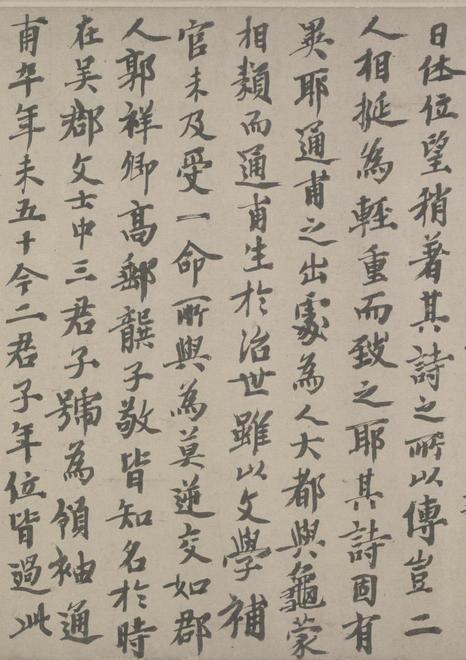 日休位望稍著其詩之所以傳豈二
人相挻為輕重而致之耶其詩固有
異耶通甫之出處為人大都與龜蒙
相類而通甫生於治世雖以文學補
官未及受一命所與為莫逆交如郡
人郭祥卿高郵龔子敬皆知名於時
在吳郡文士中三君子號為領袖通
甫卒年未五十今二君子年位皆過此